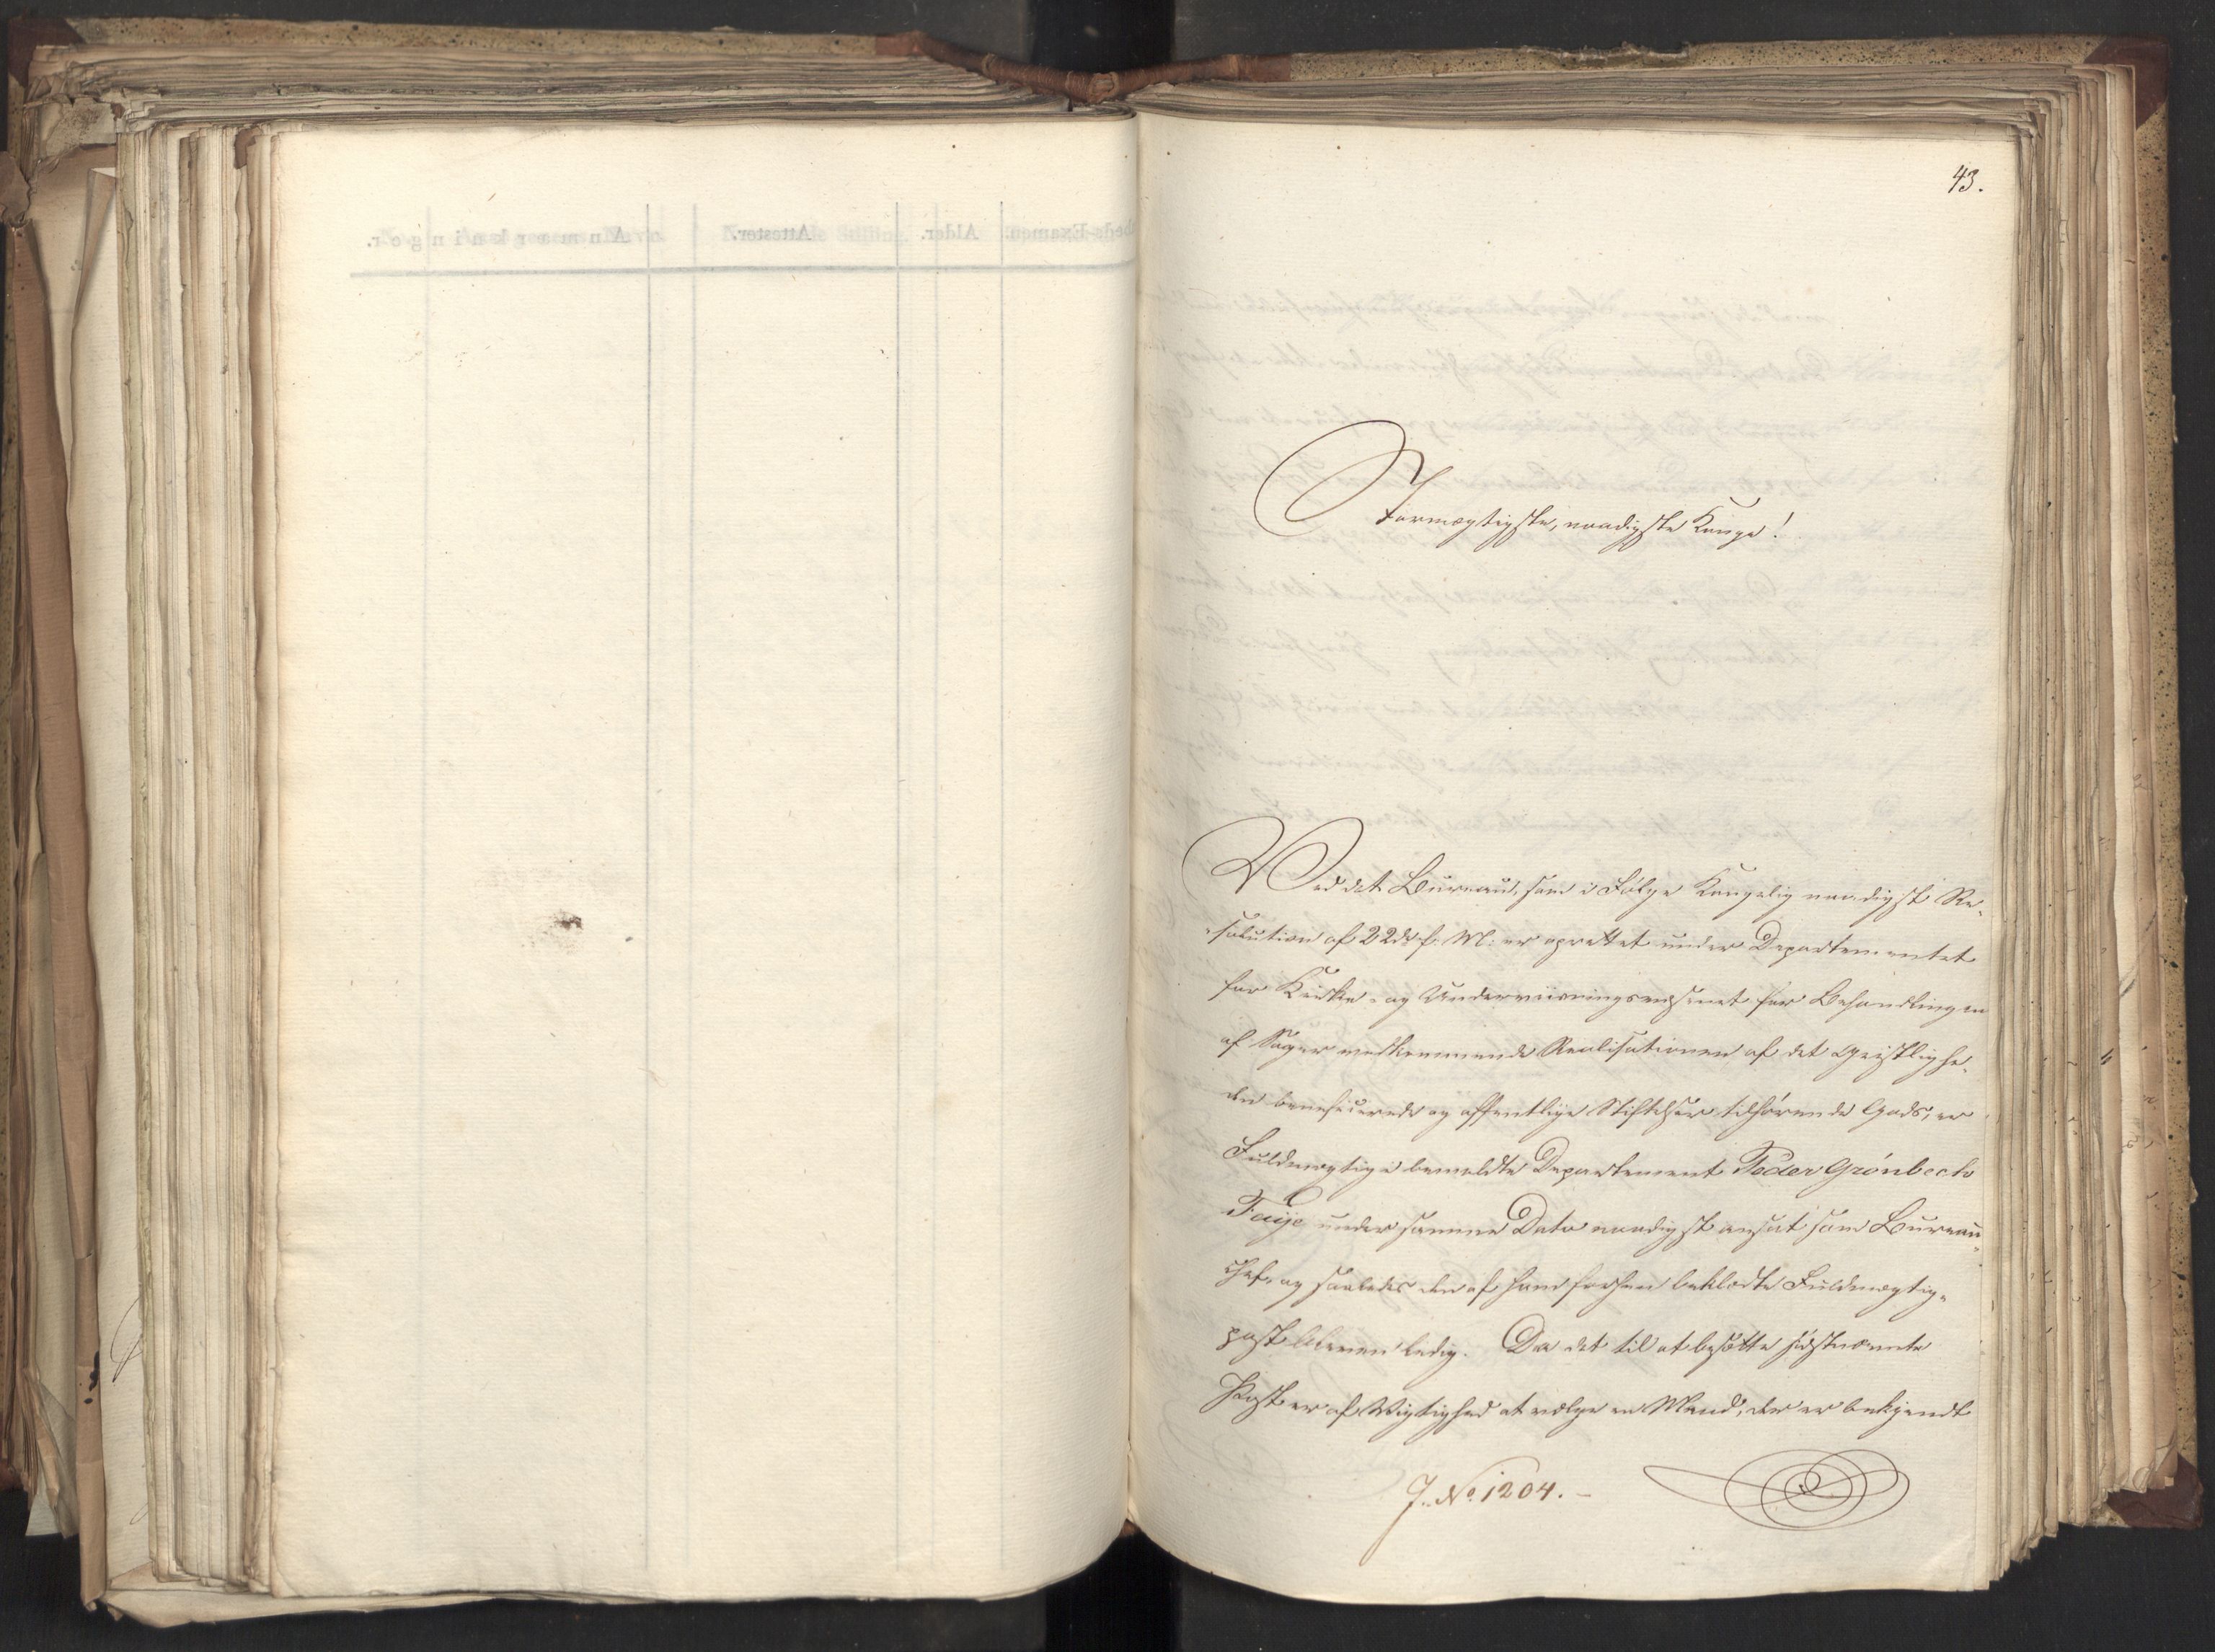 43.
Stormægtigste, naadigste Konge!
Ved det Bureau, som i Følge Kongelig naadigst Re-
solution af 22de f. M: er oprettet under Departementet
for Kirke- og Underviisningsvæsenet for Behandlingen
af Sager vedkommende Realisationen af det Geistlighe-
den beneficerede og offentlige Stiftelser tilhørende Gods, er
Fuldmægtig i bemeldte Departement Peder Grönbech
Taije under samme Dato naadigst ansat som Bureau-
chef, og saaledes den af ham forhen beklædte Fuldmægtig-
post bleven ledig. Da det til at besætte sidstnævnte
Post er af Vigtighed at vælge en Mand, der er bekjendt
J. No. 1204.-